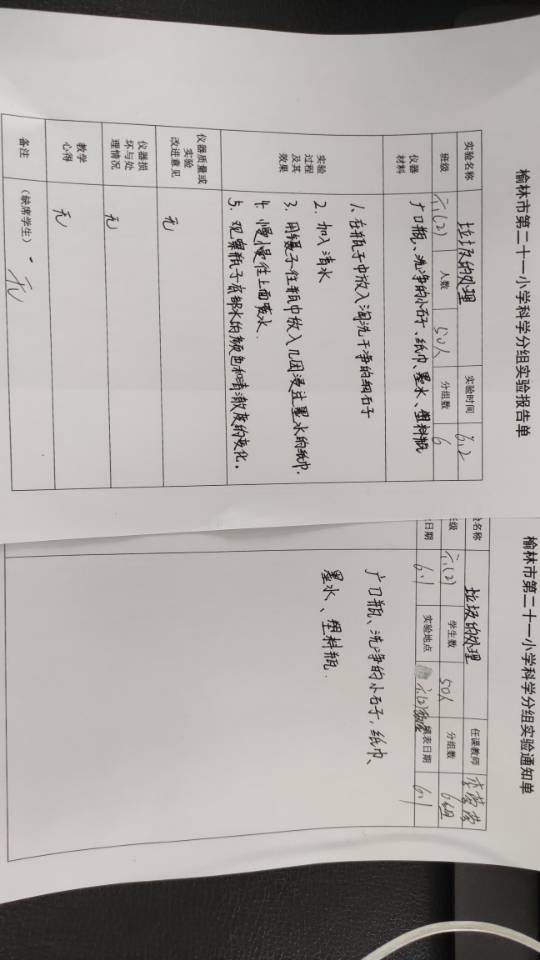 榆林市第二十一小学科学分组实验报告单
实验名称 垃圾的处理 实验时间 6.2
班级 六(2) 人数 50人 分组数 6
仪器材料 广口瓶、洗净的小石子、纸巾、墨水、塑料瓶
实验过程及其效果
1. 在瓶子中放入淘洗干净的细石子
2. 加入清水
3. 用镊子往瓶中放入几团浸过墨水的纸巾.
4. 慢慢往上面喷水.
5. 观察瓶子底部水的颜色和清澈度的变化。
仪器质量或实验改进意见 无
仪器损坏与处理情况 无
教学心得 无
备注 (缺席学生) 无
榆林市第二十一小学科学分组实验通知单
验名称 垃圾的处理 任课教师
级 六(2) 学生数 50人 分组数 6组
日期 6.1 实验地点 六(2)教室 填表日期 6.1
广口瓶、洗净的小石子，纸巾、
墨水、塑料瓶.